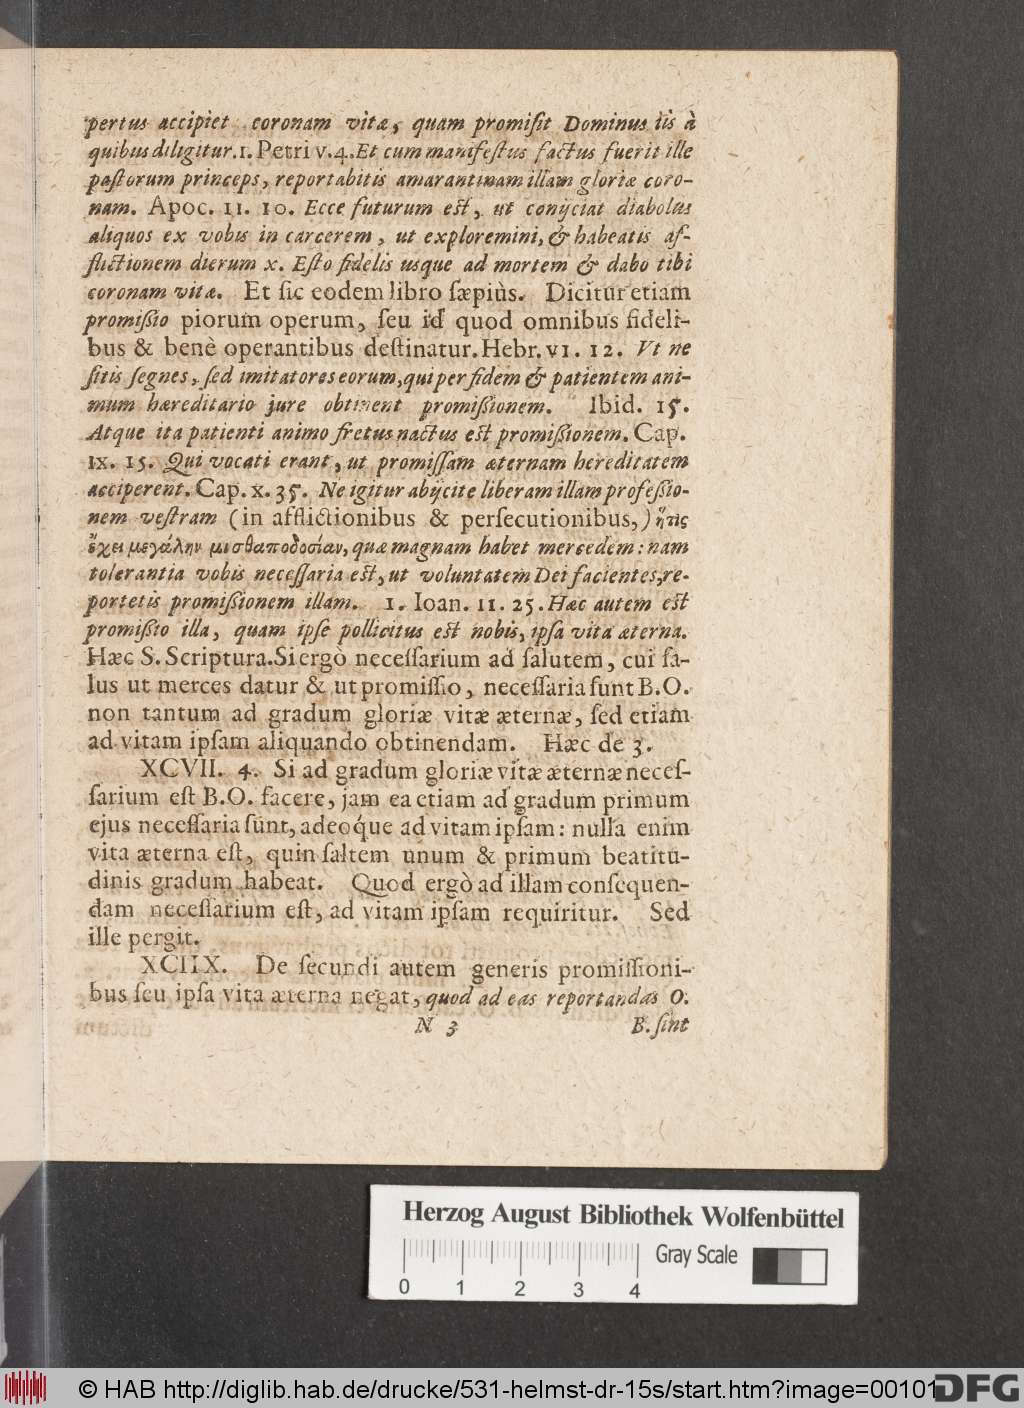 pertus accipiet coronam vitæ, quam promiſit Dominus iis à
quibus diligitur. 1. Petri v. 4. Et cum manifeſtus factus fuerit ille
paſtorum princeps, reportabitis amarantinam illam gloriæ coro-
nam. Apoc. II. 10. Ecce futurum eſt, ut conijciat diabolus
aliquos ex vobis in carcerem, ut exploremini, & habeatis af-
flictionem dierum x. Eſto fidelis usque ad mortem & dabo tibi
coronam vitæ. Et ſic eodem libro ſæpiùs. Dicitur etiam
promißio piorum operum, ſeu id quod omnibus fideli-
bus & benè operantibus deſtinatur. Hebr. VI. 12. Vt ne
ſitis ſegnes, ſed imitatores eorum, qui per fidem & patientem ani-
mum hæreditario jure obtinent promißionem. Ibid. 15.
Atque ita patienti animo fretus nactus eſt promißionem. Cap.
IX. 15. Qui vocati erant, ut promiſſam æternam hereditatem
acciperent. Cap. X. 35. Ne igitur abijcite liberam illam profeßio-
nem veſtram (in afflictionibus & perſecutionibus,) ἥτις
ἔχει μεγάλην μισθαποδοσίαν, quæ magnam habet mercedem: nam
tolerantia vobis neceſſaria eſt, ut voluntatem Dei facientes, re-
portetis promißionem illam. 1. Ioan. II. 25. Hæc autem eſt
promißio illa, quam ipſe pollicitus eſt nobis, ipſa vita æterna.
Hæc S. Scriptura. Si ergò neceſſarium ad ſalutem, cui ſa-
lus ut merces datur & ut promiſſio, neceſſaria ſunt B. O.
non tantum ad gradum gloriæ vitæ æternæ, ſed etiam
ad vitam ipſam aliquando obtinendam. Hæc de 3.
XCVII. 4. Si ad gradum gloriæ vitæ æternæ neceſ-
ſarium eſt B. O. facere, jam ea etiam ad gradum primum
ejus neceſſaria ſunt, adeoq́ue ad vitam ipſam: nulla enim
vita æterna eſt, quin ſaltem unum & primum beatitu-
dinis gradum habeat. Quod ergò ad illam conſequen-
dam neceſſarium eſt, ad vitam ipſam requiritur. Sed
ille pergit.
XCIIX. De ſecundi autem generis promiſſioni-
bus ſeu ipſa vita æterna negat, quod ad eas reportandas O.
N 3 B. ſint
Herzog August Bibliothek Wolfenbüttel
Gray Scale
0 1 2 3 4
© HAB http://diglib.hab.de/drucke/531-helmst-dr-15s/start.htm?image=00101
DFG